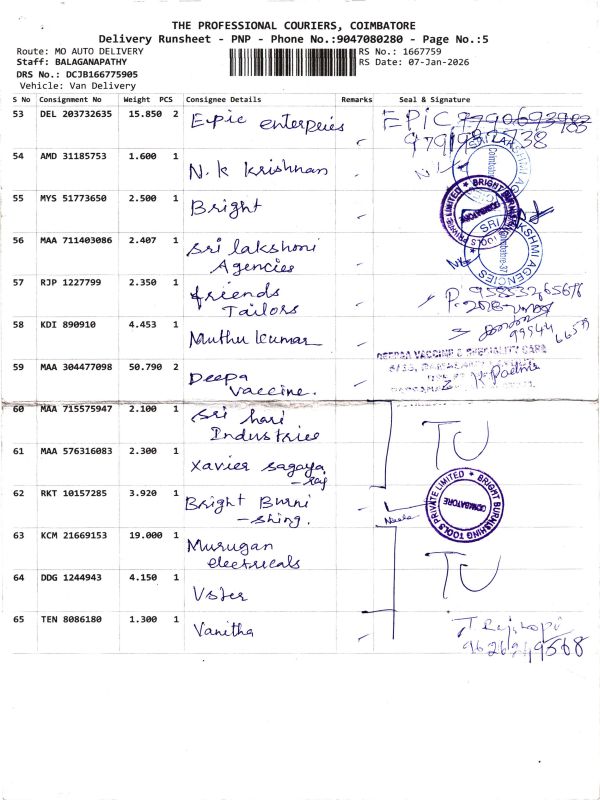 THE PROFESSIONAL COURIERS, COIMBATORE
Delivery Runsheet - PNP - Phone No.:9047080280 - Page No.:5
Route: MO AUTO DELIVERY RS No.: 1667759
Staff: BALAGANAPATHY RS Date: 07-Jan-2026
DRS No.: DCJB166775905
Vehicle: Van Delivery
S No Consignment No Weight PCS Consignee Details Remarks Seal & Signature
53 DEL 203732635 15.850 2 Epic enterpeies EPIC
54 AMD 31185753 1.600 1 N.k krishnan
55 MYS 51773650 2.500 1 Bright
56 MAA 711403086 2.407 1 Sri lakshmi
Agencies
57 RJP 1227799 2.350 1 friends
Tailors
58 KDI 890910 4.453 1 Muthu kumar
59 MAA 304477098 50.790 2 Deepa
Vaccine.
DEEPAA VACCINE & SPECIALITY CARE
60 MAA 715575947 2.100 1 Sri hari
Industries
TU
61 MAA 576316083 2.300 1 Xavier sagaya
- raj
62 RKT 10157285 3.920 1 Bright Burni
- shing.
BRIGHT BURNISHING TOOLS PRIVATE LIMITED
COIMBATORE
63 KCM 21669153 19.000 1 Murugan
electricals
TU
64 DDG 1244943 4.150 1
65 TEN 8086180 1.300 1 Vanitha